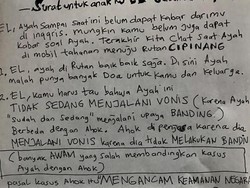 Surat untuk anak ku
EL, Ayah Sampai saat ini belum dapat kabar darimu
di inggris. Mungkin kamu belum juga dapat
kabar soal Ayah. Terakhir kita chat saat Ayah
di mobil tahanan menuju rutan CIPINANG
1. EL, ayah di Rutan baik baik saja. Di sini Ayah
malah punya banyak Doa untuk kamu dan keluarga.
2. EL, kamu harus tau bahwa Ayah ini
TIDAK SEDANG MENJALANI VONIS (karena Ayah
"Sudah dan Sedang" menjalani upaya BANDING)
Berbeda dengan Ahok. Ahok di penjara karena dia
MENJALANI VONIS karena dia TIDAK MELAKUKAN BANDING
(banyak AWAM yang salah membandingkan kasus
Ayah dengan Ahok)
pasal kasus Ahok itu "MENGANCAM KEAMANAN NEGARA